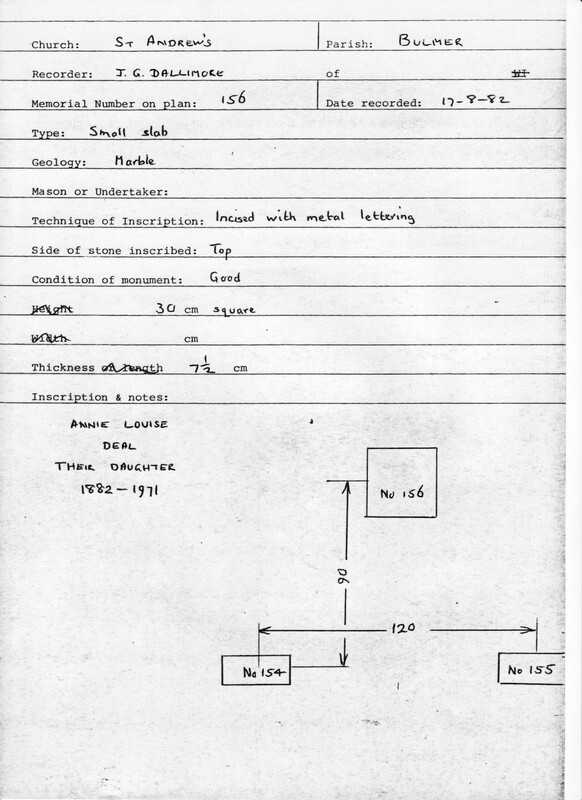 Church: St Andrew's Parish: BULMER
Recorder: J. G. DALLIMORE of
Memorial Number on plan: 156 Date recorded: 17-8-82
Type: Small slab
Geology: Marble
Mason or Undertaker:
Technique of Inscription: Incised with metal lettering
Side of stone inscribed: Top
Condition of monument: Good
Height 30 cm square
Width cm
Thickness or length 7 1/2 cm
Inscription & notes:
ANNIE LOUISE
DEAL
THEIR DAUGHTER
1882 - 1971
No 156
90
120
No 154
No 155